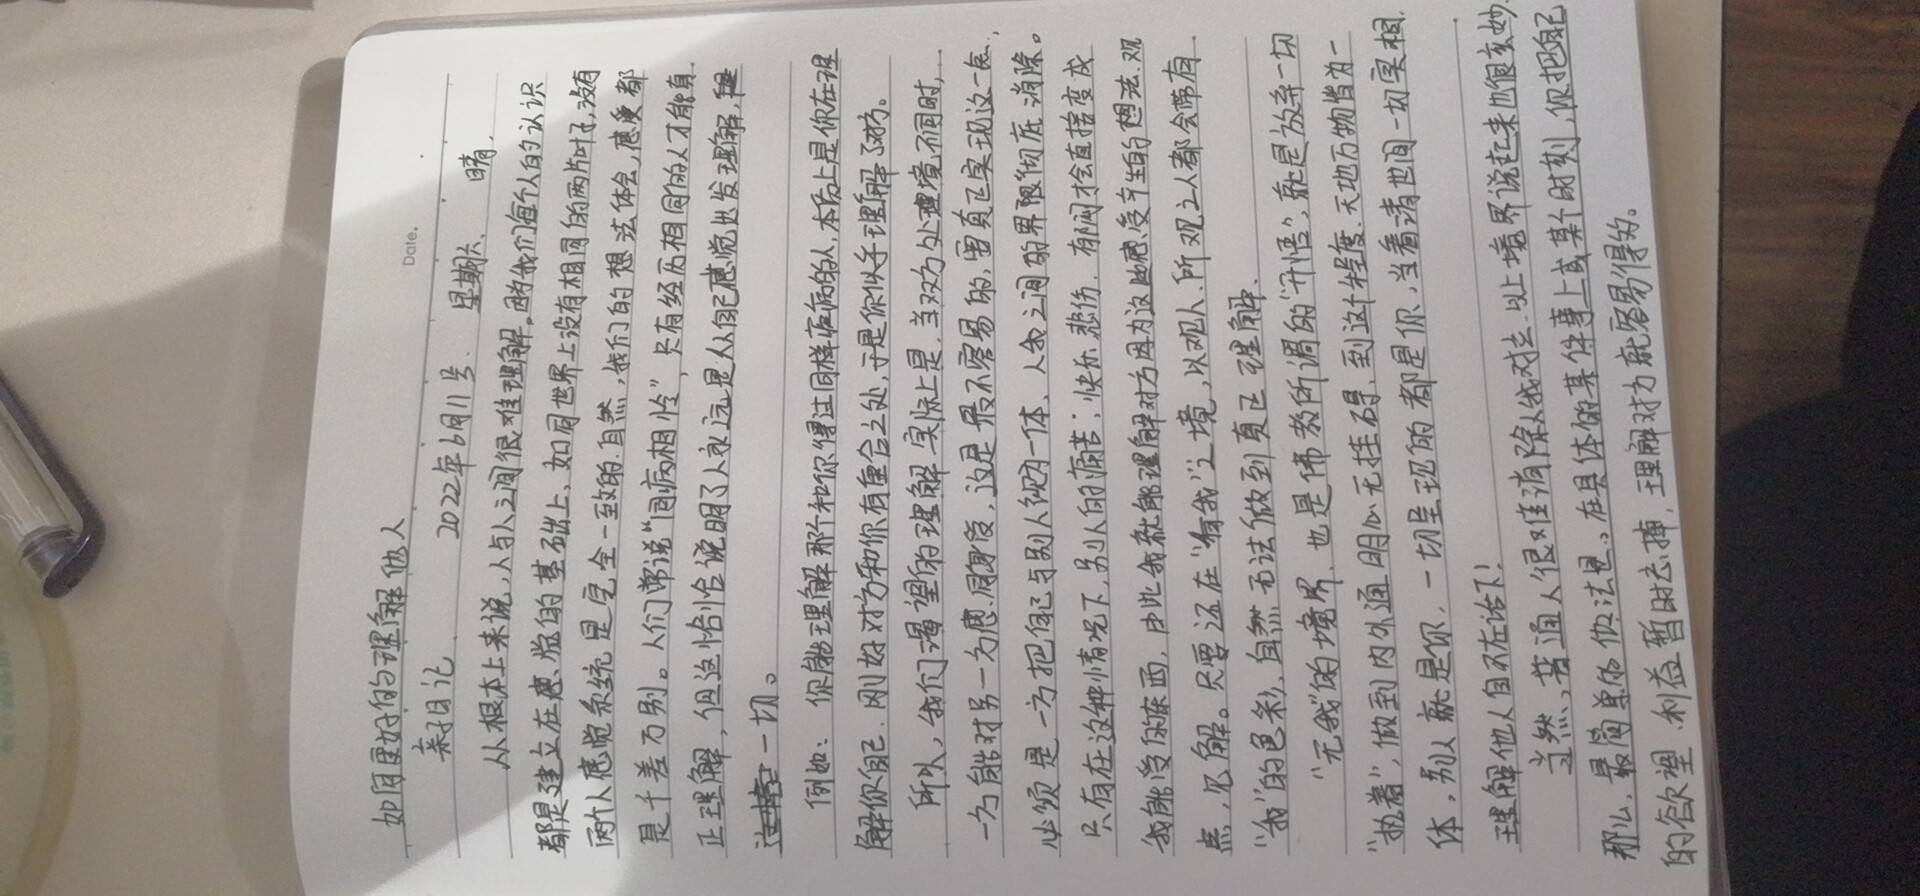 Date.
如何更好的理解他人
亲子日记 2022年6月11号. 星期六、晴.
从根本上来说，人与人之间很难理解。因为我们每个人的认识
都是建立在感觉的基础上，如同世界上没有相同的两片叶子，没有
两个人感觉系统是完全一致的.自然，我们的想法体会，感受都
是千差万别。人们常说“同病相怜”，只有经历相同的人才能真
正理解，但这恰恰说明了人永远是从自己感觉出发理解，
一切。
例如、你能理解那个和你得过同样疾病的人，本质上是你在理
解你自己.刚好对方和你有重合之处，于是你似乎理解了对方。
所以，我们渴望的理解实际上是，当双方处境不同时，
一方能对另一方感同身受，这是最不容易的，要真正实现这一点，
必须是一方把自己与别人视为一体、人我之间的界限彻底消除。
只有在这种情况下，别人的痛苦；快乐.悲伤.有时才会直接变成
我能感受的东西，由此我就能理解对方因为这些感受产生的想法.观
点，见解。只要还在“有我”之境，以观人.所观之人都会带有
“我”的色彩、自然无法做到真正理解.
“无我”的境界、也是佛教所谓的“开悟”，就是放弃一切
“执着”，做到内外通明，心无挂碍，到这个程度、天地万物皆为一
体，别人就是你，一切呈现的都是你，当看清世间一切实相.
理解他人自不在话下！
当然、普通人很难消除人我对立.以上境界说起来也很玄妙.
那么，最简单的做法是、在具体的某件事上或某个时刻，你把自己
的欲望.利益暂时去掉，理解对方就容易得多。